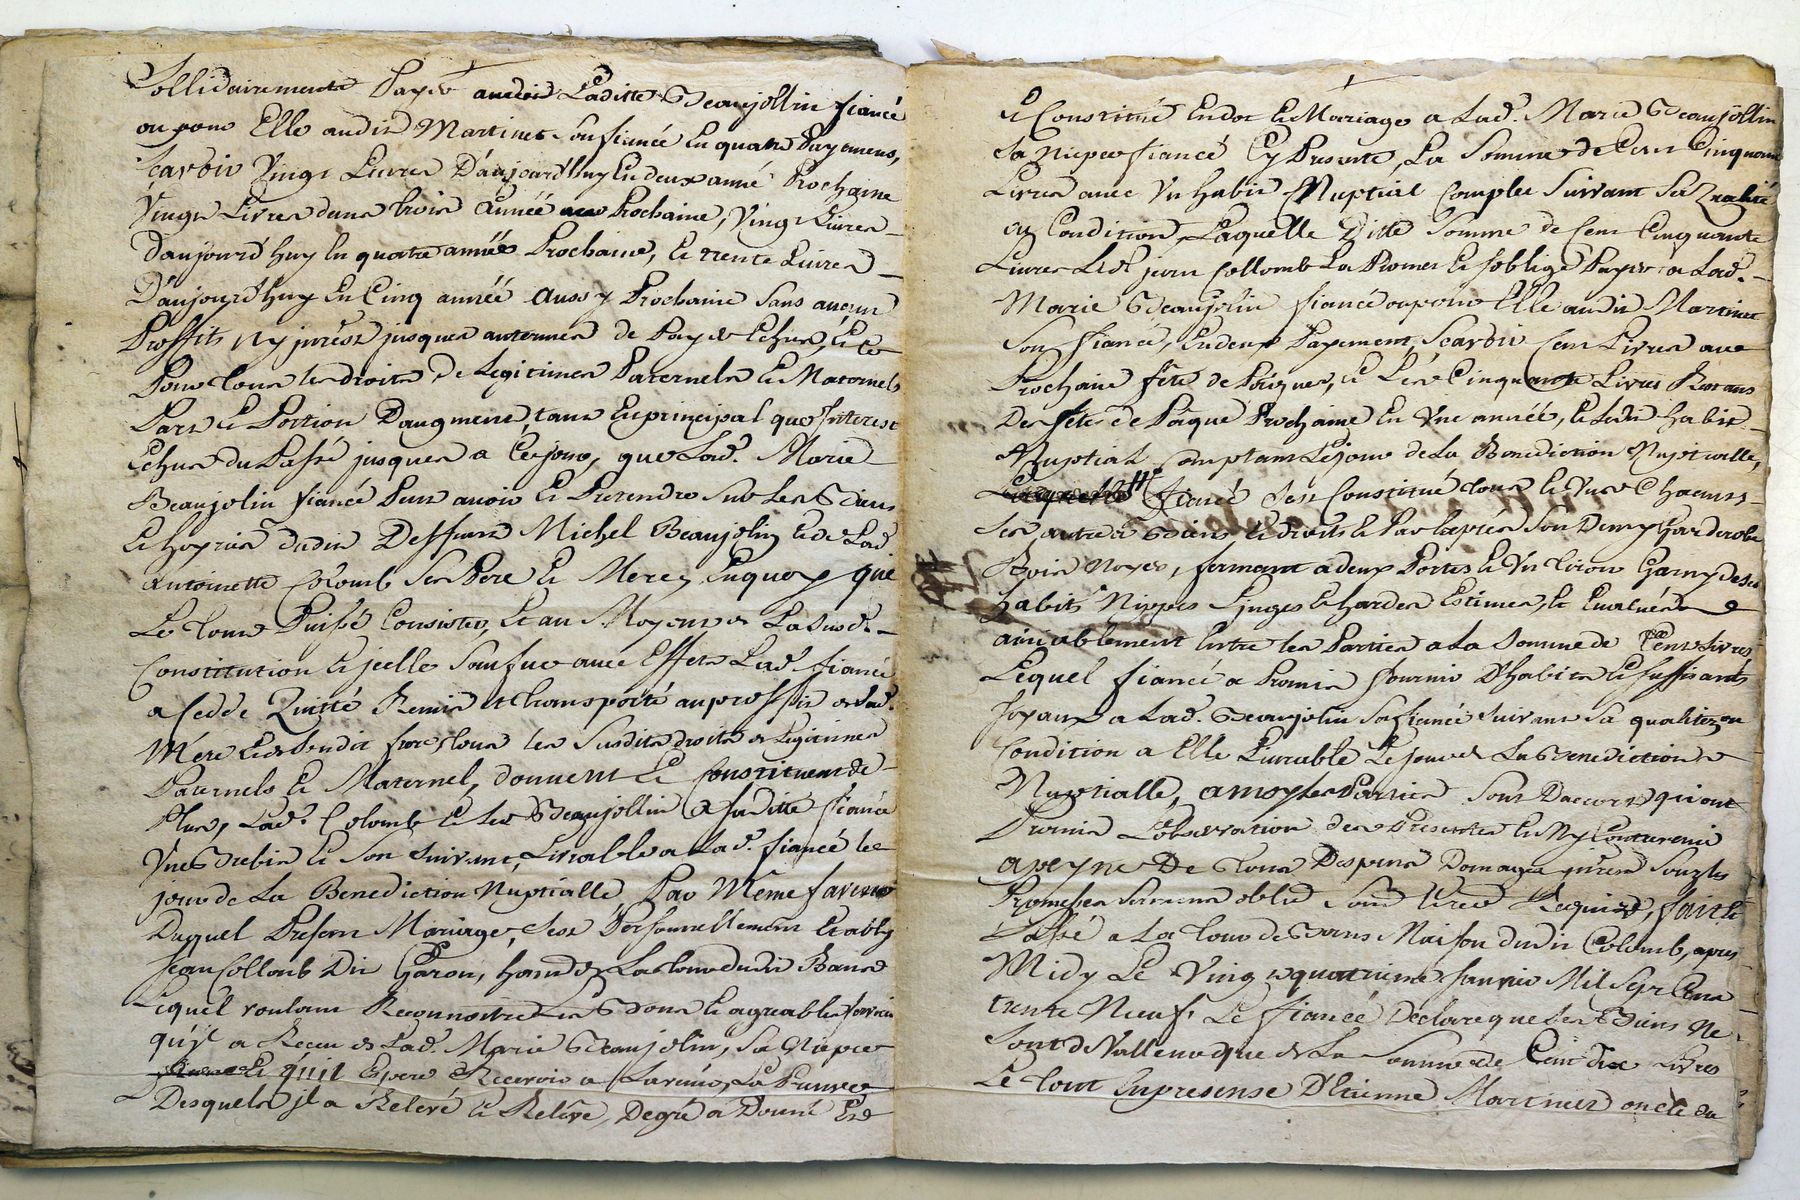 Sollidairement Payer audit Laditte Beaujollin fiancé
ou pour Elle audit Martinet Son fiancé En quatre Payemens,
Scavoir Vingt Livres D'aujourd'huy En deux anné Prochaine
Vingt Livres dans trois Année Prochaine, Vingt Livres
D'aujourd'huy En quatre année Prochaine, Et trente Livres
D'aujourd'huy En Cinq année Aussy Prochaine Sans aucun
Proffits Ny jnrest jusques aux termes de Payer Echus, Et Ce
Pour tous les droits De Legitimes Paternels Et Maternels
Part Et Portion Daugment, tant En principal que Interest
Echus du Passé jusques a Ce jour, que Lad. Marie
Beaujolin fiancé Peut avoir Et Pretendre Sur Les Biens
Et hoyries dudit Deffunt Michel Beaujolin Et de Lad.
Antoinette Colomb Ses Pere Et Mere, En quoy que
Le tout Puisse Consister, Et au Moyen de La Susd.
Constitution Et jcelle Sortissant avec Effet Lad. fiancé
a Cedde Quitté Remis Et transporté au proffit de Sad.
Mere Et dudit frere tous les Susdits droits de Legitimes
Paternels Et Maternel, donnent Et Constituent de
Plus, Lad. Colomb Et Led. Beaujollin a Laditte fiancée
Une Brebis Et Son Suivant Livrable a Lad. fiancé le
jour de La Benediction Nuptialle, Par Même faveur
Duquel Present Mariage, S'est Personnellement Etably
Jean Collomb Dit Garon, de La tour dudit
Lequel voulant Reconnoitre Les Bons Et agreables services
qu'jl a Receu de Lad. Marie Beaujolin, Sa Niepce
Et qu'il Espere Recevoir a Lavenir, La Preuve
Desquels jl a Relevé Et Releve, De gré a Donné Et
Et Constitué En dot Et Mariage a Lad. Marie Beaujollin
Sa Niepce fiancé Cy Presente, La Somme de Cent Cinquante
Livres avec Un habit Nuptial Complet Suivant Sa qualité
Et Condition, Laquelle Ditte Somme de Cent Cinquante
Livres Led. jean Collomb La Promet Et S'oblige Payer a Lad.
Marie Beaujolin fiancé ou pour Elle audit Martinet
Son fiancé, En deux Payement, Scavoir Cent Livres aux
Prochaine fête de Pâques, Et Les Cinquante Livres Restans
Des fêtes de Pâque Prochaine En Une année, Et Ledit habit
Nuptial Comptant Le jour de La Benediction Nuptialle,
Fiancé S'est Constitué tous Et Uns Chacuns
Ses autres Biens Et droits Et Par Exprès Son Demy Garderobe
Bois Noyer, fermant a deux Portes Et Un tiroir Garny de Ses
habits Nippes Linges Et hardes Estimés, Et Evalués
amiablement Entre les Parties a La Somme de Cent Livres
Lequel fiancé a Promis fournir D'habits Et Suffisants
Joyaux a Lad. Beaujolin Sa fiancé Suivant Sa qualité ou
Condition a Elle Livrable Le jour de La Benediction
Nuptialle, Parties Sont Daccord qui ont
Promis L'observation des Presentes Et Ny Contrevenir
a peyne De Tous Despens Domages jnrest Souz les
Promesses Serment oblié Soumis Requis, fait Et
Passé a La tour de Maison dudit Colomb, apres
Midy Le Vingt quatrieme Janvier Mil Sept Cent
trente Neuf. Le fiancé Declare que Ses Biens Ne
Sont de Valleur que de La Somme de Cent dix Livres
Le tout En presense D'Etienne Martinet oncle du